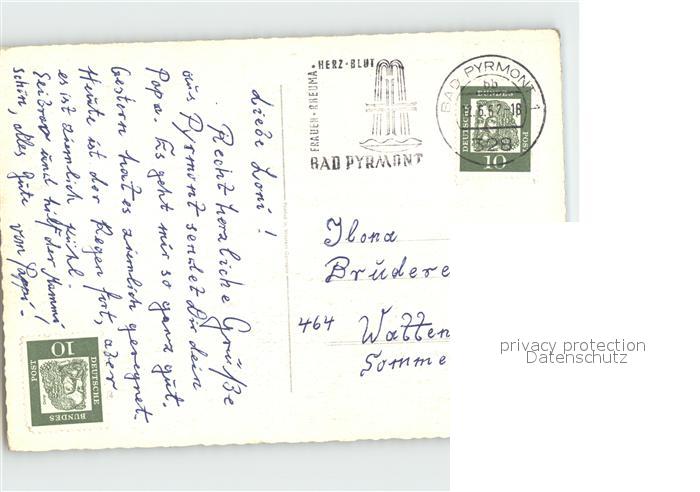 Liebe Loni!
Recht herzliche Grüße
aus Pyrmont sendet Dir dein
Papa. Es geht mir so ganz gut.
Gestern hat es ziemlich geregnet.
Heute ist der Regen fort, aber
es ist ziemlich kühl.
Sei brav und hilf der Mammi
schön, alles Gute vom Pappi-
FRAUEN · RHEUMA · HERZ · BLUT
BAD PYRMONT
BAD PYRMONT 1
bb
328
DEUTSCHE
BUNDES
POST
10
Ilona
Brudere
464 Watten
Somme
DEUTSCHE
BUNDES
POST
10
privacy protection
Datenschutz